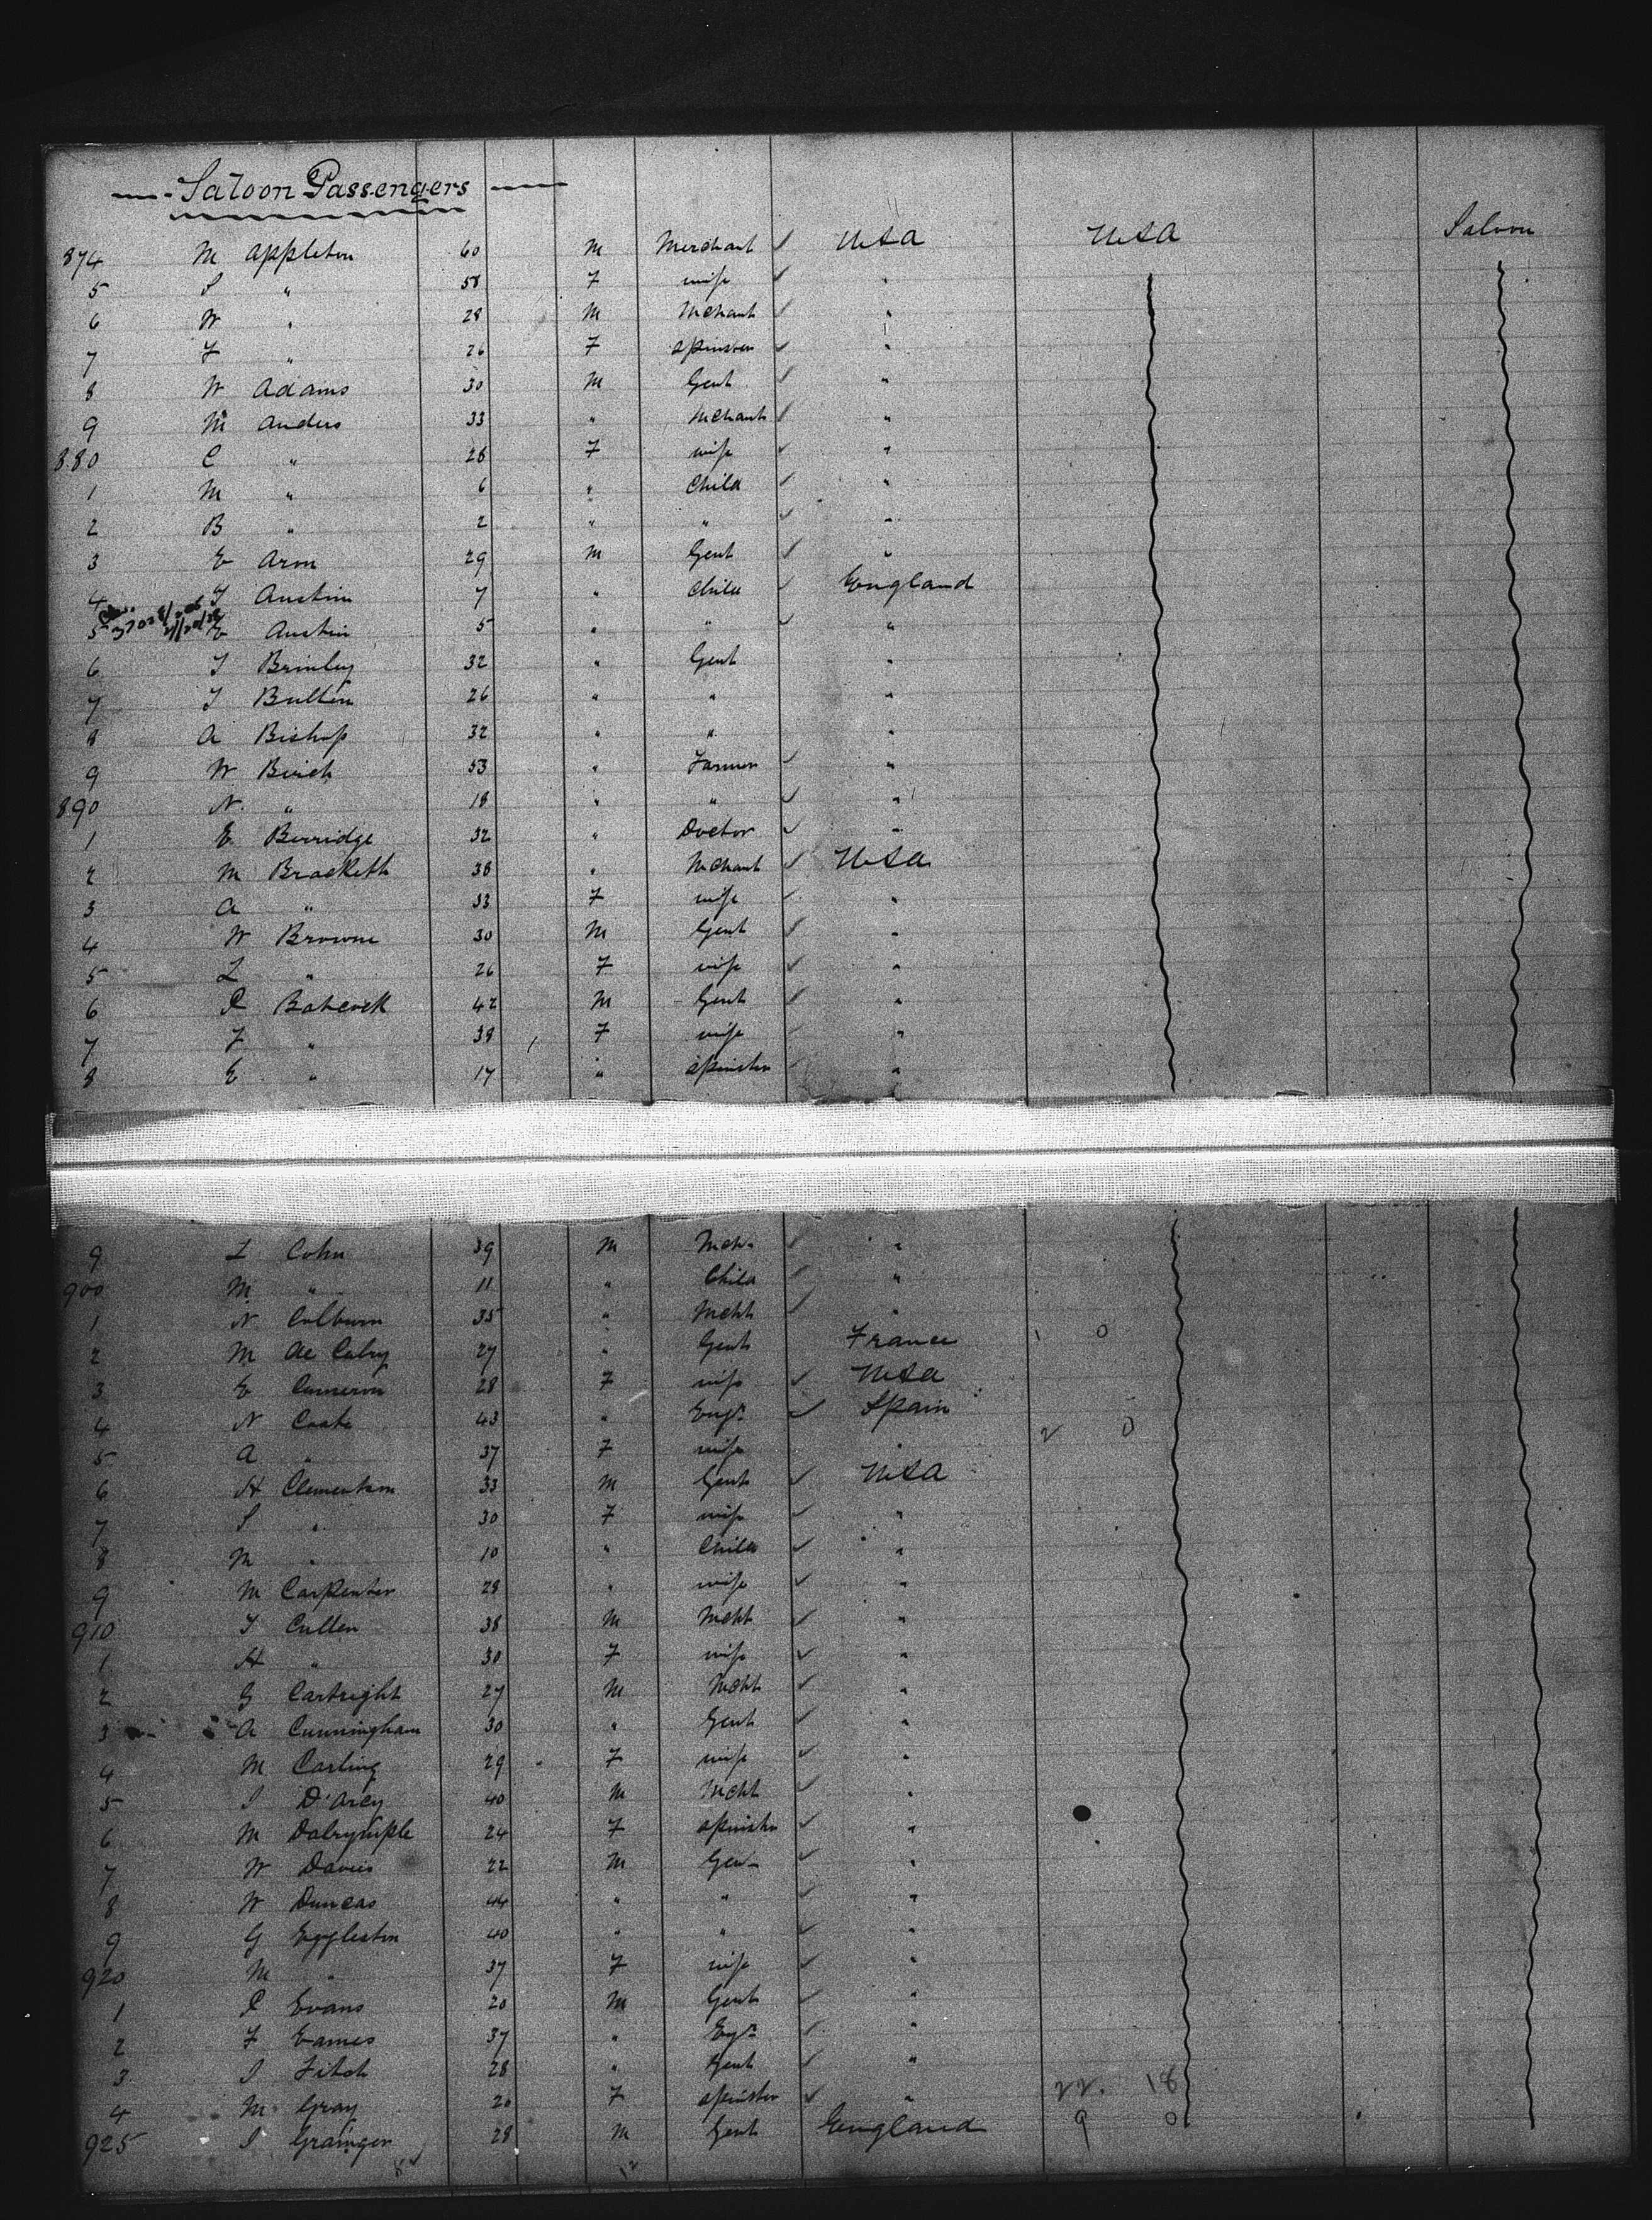 Saloon Passengers
874 M Appleton 60 M Merchant ✓ USA USA Saloon
5 S " 58 F wife ✓ "
6 W " 28 M Mchant ✓ "
7 F " 26 F Spinster ✓ "
8 W Adams 30 M Gent ✓ "
9 M Anders 33 " Mchant ✓ "
880 C " 26 F wife ✓ "
1 M " 6 " Child ✓ "
2 B " 2 " " ✓ "
3 E Arm 29 M Gent ✓ "
4 J Austin 7 " Child ✓ England
5 E Austin 5 " " ✓ "
6 J Brinley 32 " Gent "
7 J 26 " " "
8 A Bishop 32 " " "
9 W Birch 53 " Farmer ✓ "
890 N " 18 " " ✓ "
1 E Berridge 32 " Doctor ✓ "
2 M Brackett 38 " Mchant ✓ USA
3 A " 33 F wife ✓ "
4 W Browne 30 M Gent ✓ "
5 L " 26 F wife ✓ "
6 P Babcock 42 M Gent ✓ "
7 F " 38 F wife ✓ "
8 E " 17 " Spinster ✓ "
9 L Cohn 39 M Mch. ✓ "
900 M " 11 " Child ✓ "
1 N Colburn 35 " Mcht ✓ "
2 M de 27 " Gent France 1 0
3 E Cameron 28 F wife ✓ USA
4 N 43 " Engr ✓ Spain 2 0
5 A " 37 F wife "
6 H Clementson 33 M Gent ✓ USA
7 S " 30 F wife ✓ "
8 M " 10 " Child ✓ "
9 M Carpenter 28 " wife ✓ "
910 J Cullen 38 M Mcht ✓ "
1 H " 30 F wife ✓ "
2 G Cartright 27 M Mcht ✓ "
3 A Cunningham 30 " Gent ✓ "
4 M Carling 29 F wife ✓ "
5 J D'Arcy 40 M Mcht ✓ "
6 M Dalrymple 24 F Spinster ✓ "
7 W Davies 22 M Gen ✓ "
8 W Duncas 44 " " ✓ "
9 G Eggleston 40 " " ✓ "
920 M " 37 F wife ✓ "
1 P Evans 20 M Gent ✓ "
2 F Eames 37 " Egr ✓ "
3 J Fitch 28 " Gent ✓ "
4 M Gray 20 F Spinster ✓ " 22. 18
925 J Grainger 28 M Gent England 9 0